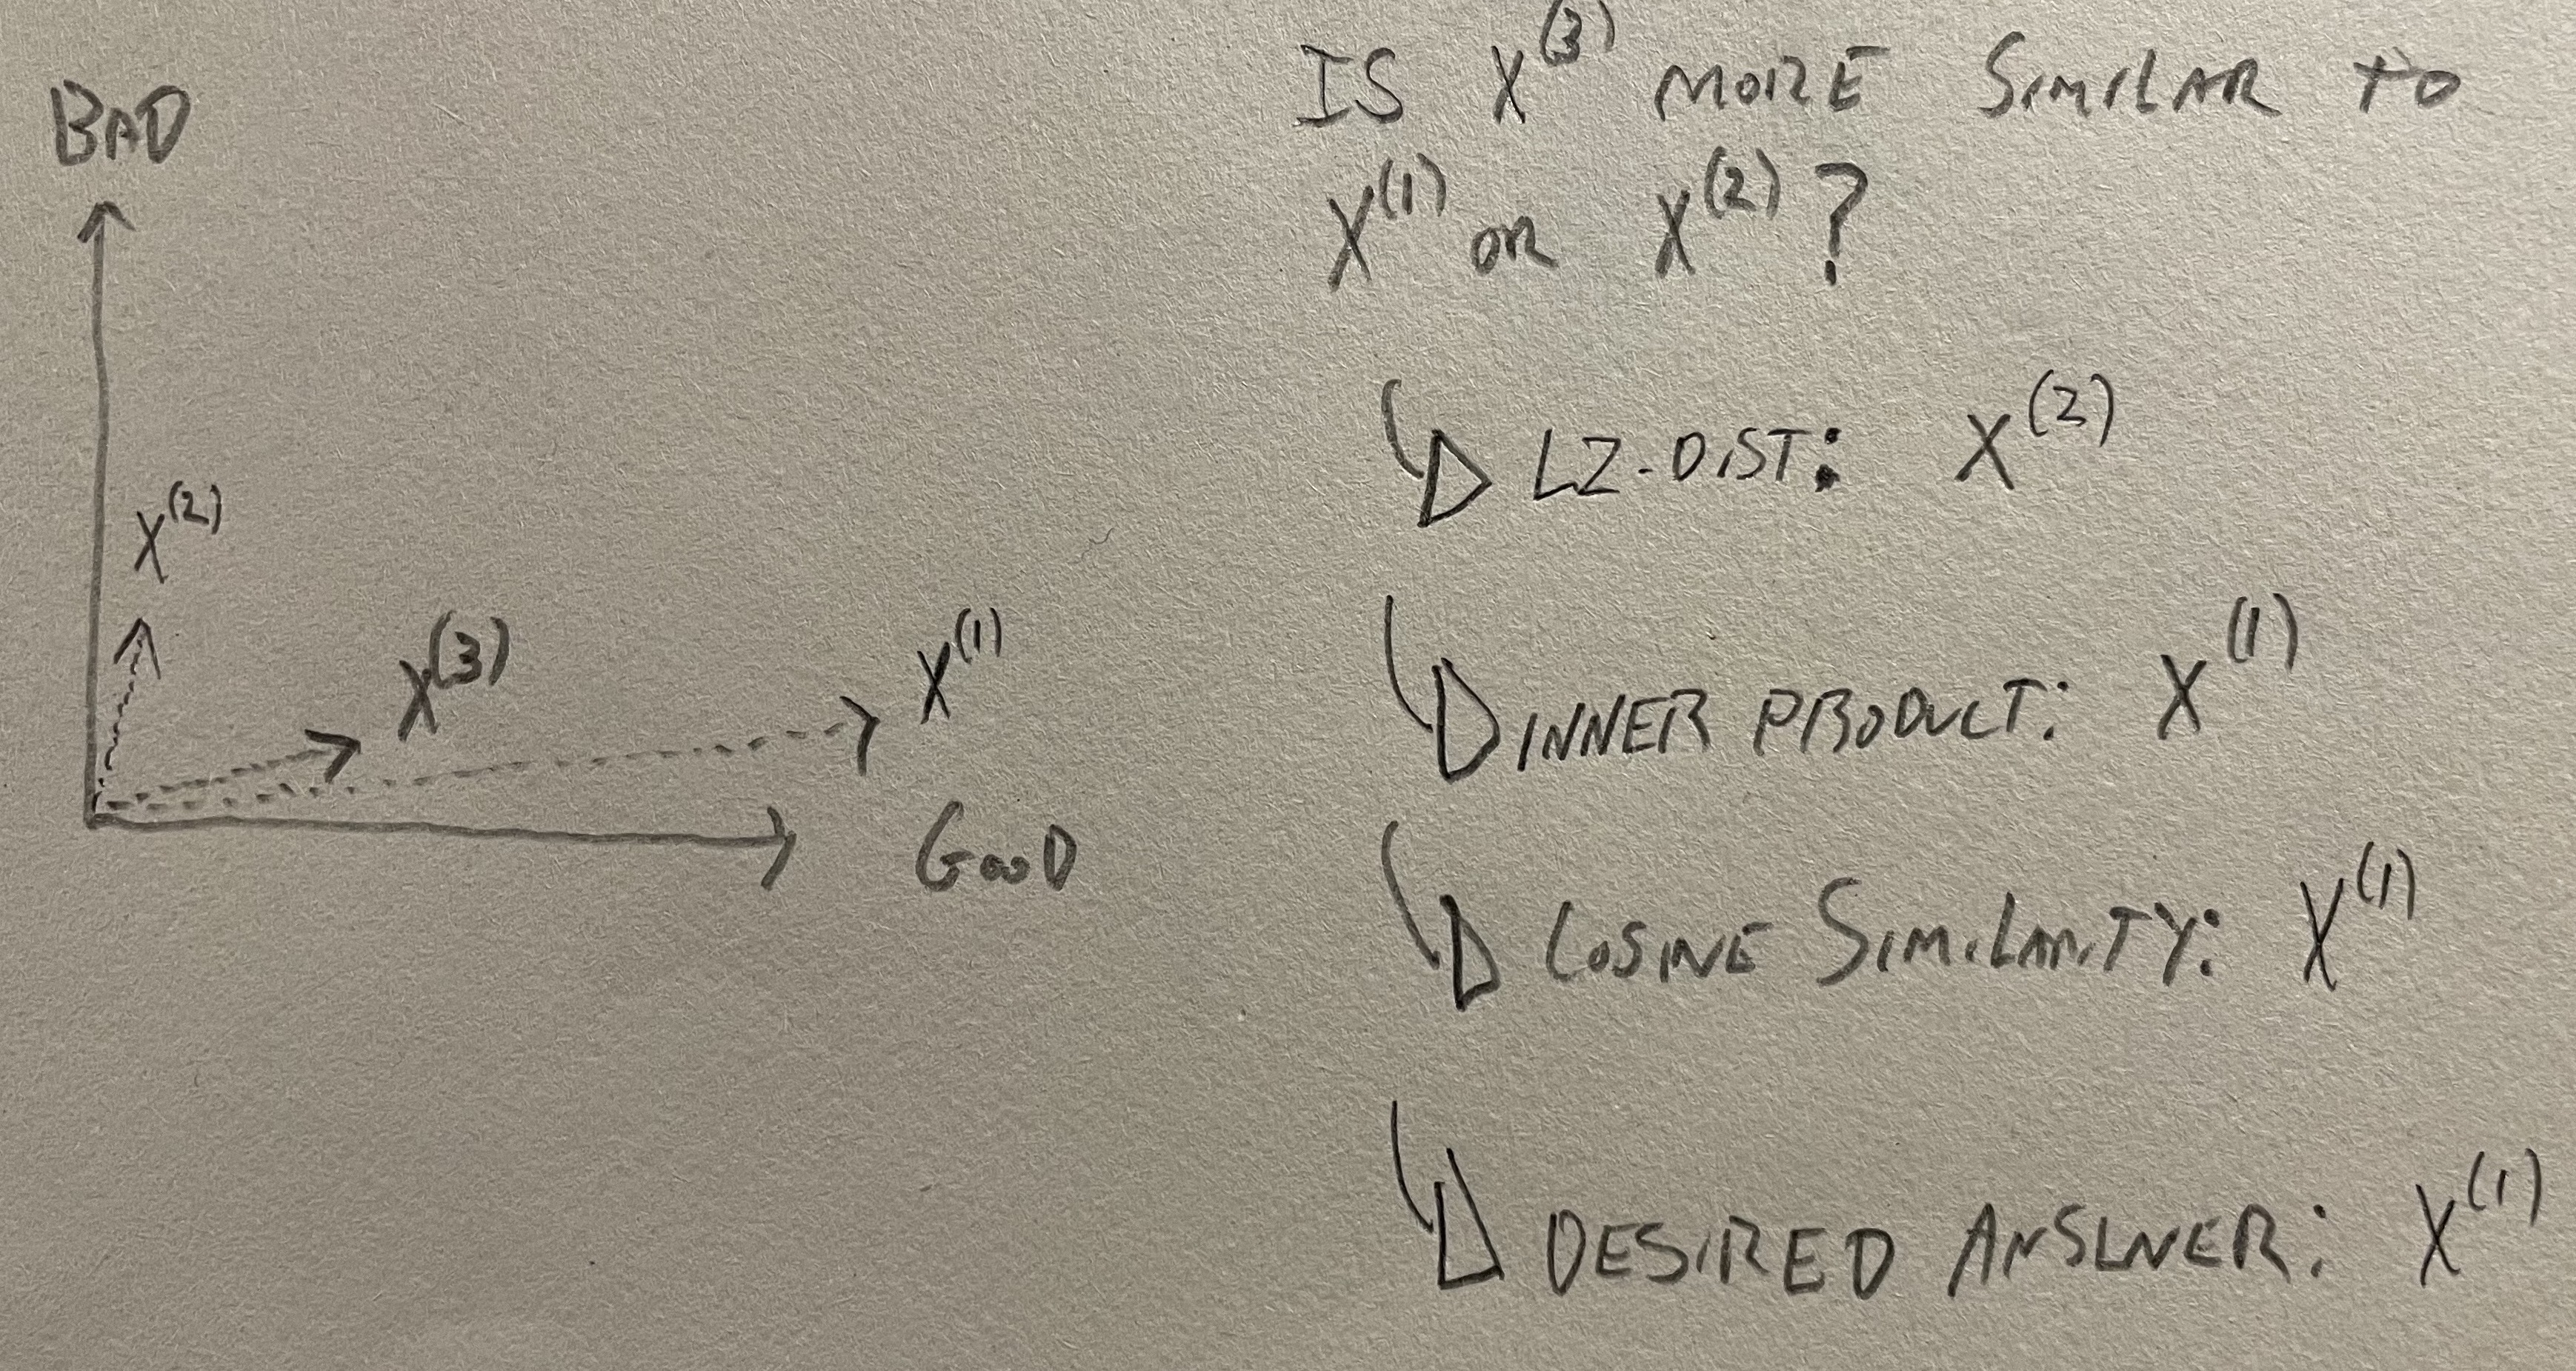 BAD
X^(2)
X^(3)
X^(1)
GOOD
IS X^(3) MORE SIMILAR TO
X^(1) OR X^(2)?
L2-DIST: X^(2)
INNER PRODUCT: X^(1)
COSINE SIMILARITY: X^(1)
DESIRED ANSWER: X^(1)